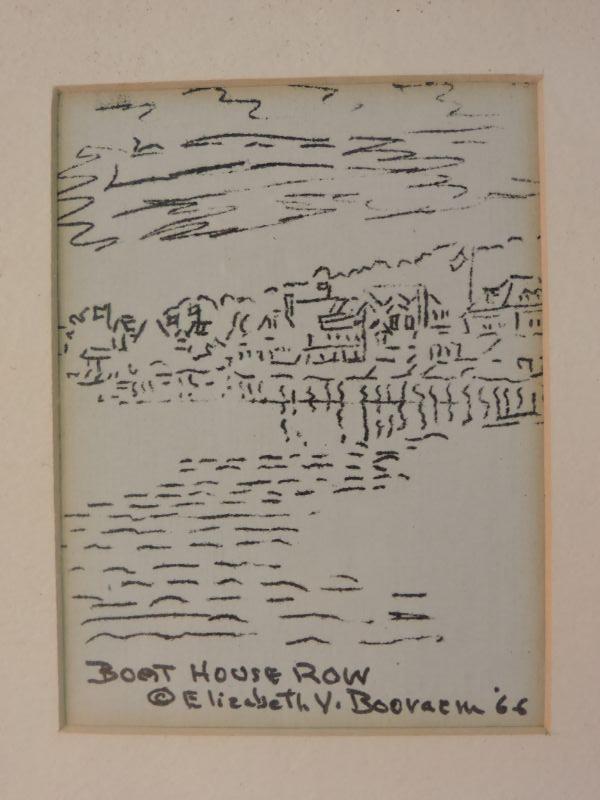 BOAT HOUSE ROW
© Elizabeth V. '66